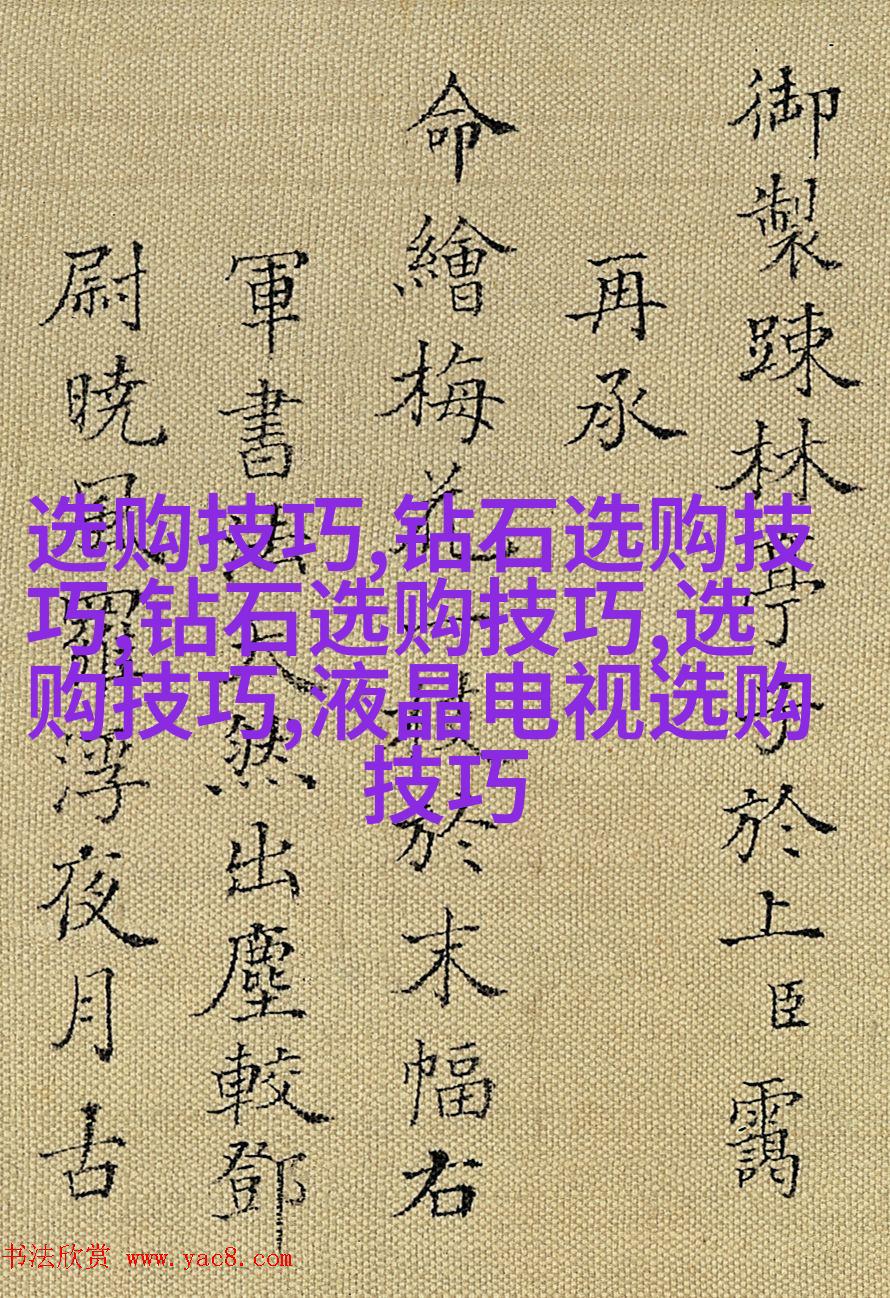 御製踈林亭子於上臣靄
再承
命繪梅花一枝於末幅右
軍書法天然出塵較鄧
尉曉風羅浮夜月古
选购技巧,钻石选购技
巧,钻石选购技巧,选
购技巧,液晶电视选购
技巧
书法欣赏 www.yac8.com